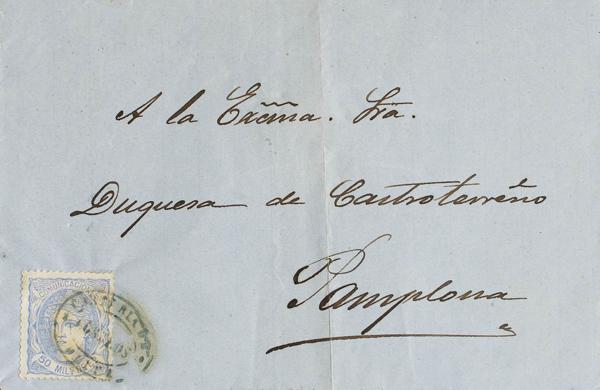 A la Exc̃ma. Sra.
Duquesa de Castroterreño
Pamplona
COMUNICACIONES
50 MILS